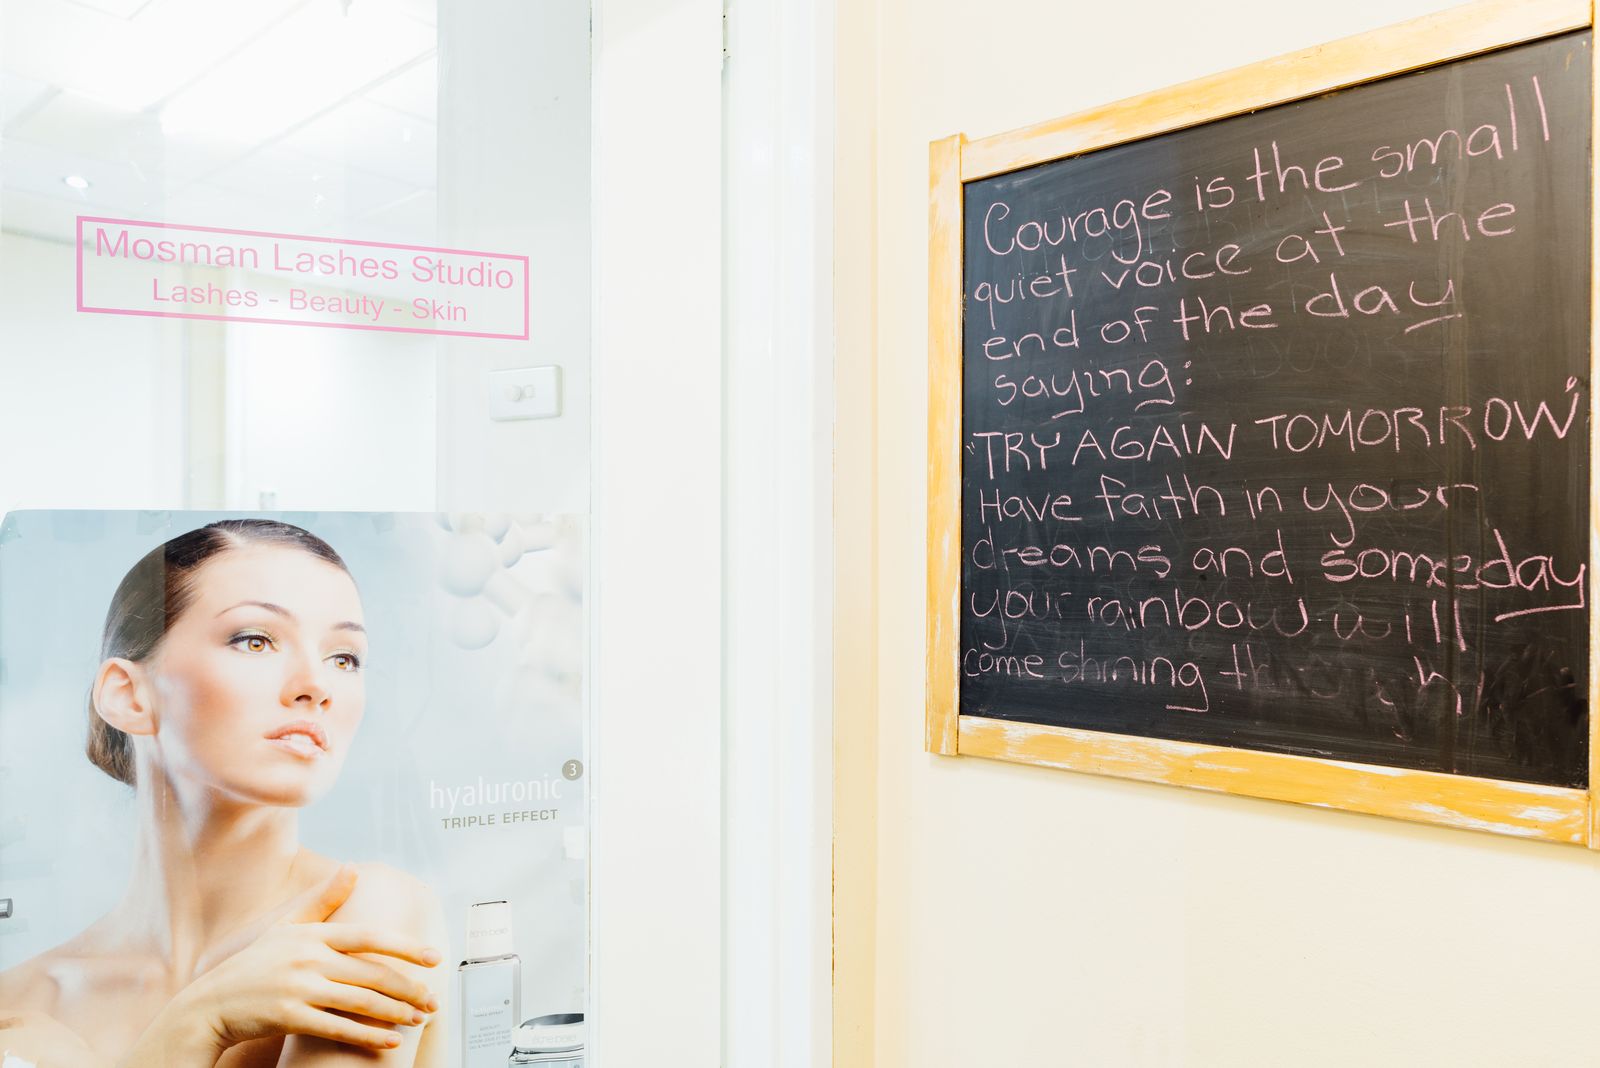 Mosman Lashes Studio
Lashes - Beauty - Skin
hyaluronic 3
TRIPLE EFFECT
être belle
TRIPLE EFFECT
être belle
Courage is the small
quiet voice at the
end of the day
saying:
"TRY AGAIN TOMORROW"
Have faith in your
dreams and someday
your rainbow will
come shining through